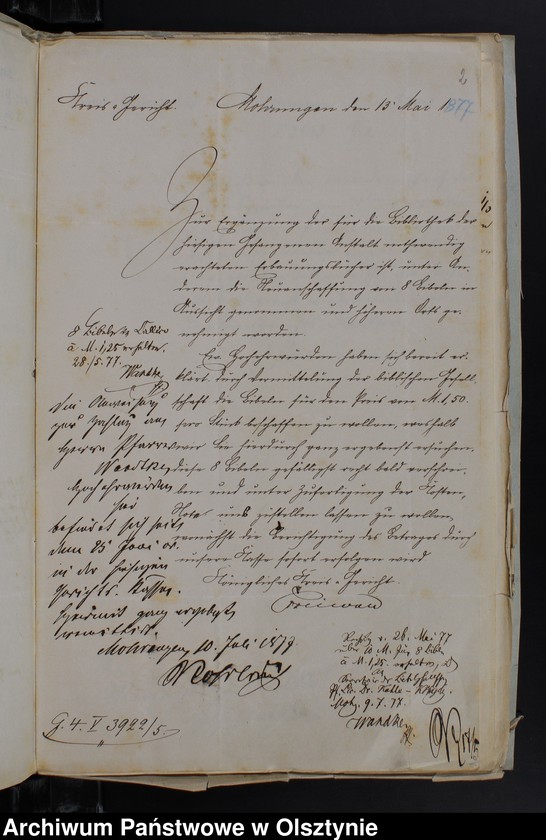 2
Kreis-Gericht. Mohrungen den 15 Mai 1877
Zur Ergänzung der für die Bibliothek der
hiesigen Gefangenen Anstalt nothwendig
erachteten Erbauungsbücher ist, unter An-
derem die Neuanschaffung von 8 Bibeln in
Aussicht genommen und höheren Orts ge-
nehmigt worden.
Ew. Hochehrwürden haben sich bereit er-
klärt durch Vermittelung der biblischen Gesell-
schaft die Bibeln für den Preis von M. 1,50.
pro Stück beschaffen zu wollen, weshalb
wir Sie hierdurch ganz ergebenst ersuchen,
diese 8 Bibeln gefälligst recht bald verschrei-
ben und unter Zufertigung der Kosten-
Nota uns zustellen lassen zu wollen,
wonächst die Berechtigung des Betrages durch
unsere Kasse sofort erfolgen wird
Königliches Kreis-Gericht.
8 Bibeln
à M. 1,25 erhalten.
28/5. 77.
Wendke
Die Anweisung
zur Zahlung an
Herrn Pfarrer
Wendke
Hochehrwürden
hier
befindet sich seit
dem 25 Juni cr.
in der hiesigen
Gerichts-Kasse.
Hiermit ganz ergebenst
Mohrungen 10. Juli 1877
26. Mai 77
über 10 M. für 8 Bibeln
à M. 1,25. erhalten,
Moh. 9. 7. 77.
Wendke
G. 4. V 3922/5.
Archiwum Państwowe w Olsztynie